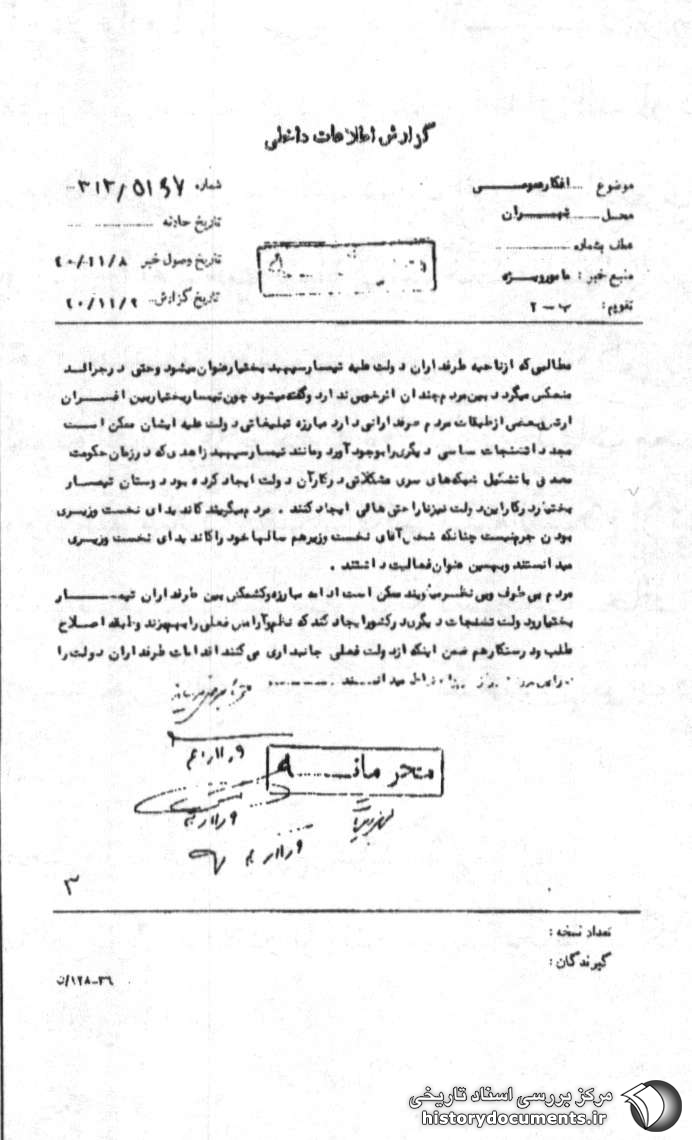 گزارش اطلاعات داخلی
موضوع افکار عمومی
شماره ۳۱۲/۵۱۶۷
محل تهران
تاریخ حادثه
عطف بشماره
تاریخ وصول خبر ۴۰/۱۱/۸
منبع خبر : مامور ویژه
تاریخ گزارش ۴۰/۱۱/۹
تقویم : ب - ۲
مطالبی که از ناحیه طرفداران دولت علیه تیمسار سپهبد بختیار عنوان میشود و حتی در جرائد
منعکس میگردد بین مردم چندان اثر خوبی ندارد و گفته میشود چون تیمسار بختیار بین افسران
ارتش و بعضی از طبقات مردم طرفدارانی دارد مبارزه تبلیغاتی دولت علیه ایشان ممکن است
مجددا تشنجات سیاسی دیگری را بوجود آورد و مانند تیمسار سپهبد زاهدی که در زمان حکومت
مصدق با تشکیل شبکه‌های سری مشکلاتی در کار آن دولت ایجاد کرده بود دوستان تیمسار
بختیار در کار این دولت نیز ناراحتی هائی ایجاد کنند . مردم میگویند کاندیدای نخست وزیری
بودن جرم نیست چنانکه شخص آقای نخست وزیر هم سالها خود را کاندیدای نخست وزیری
میدانستند و بهمین عنوان فعالیت داشتند .
مردم بی طرف و بی نظر میگویند ممکن است ادامه مبارزه و کشمکش بین طرفداران تیمسار
بختیار و دولت تشنجات دیگری در کشور ایجاد کند که نظم و آرامش فعلی را بهم بزند و طبقه اصلاح
طلب و درستکار هم ضمن اینکه از دولت فعلی جانبداری می کنند اقدامات طرفداران دولت را
میدانند
محرمانه
۹/۱۱/۴۰
۹/۱۱/۴۰
۹/۱۱/۴۰
۳
تعداد نسخه :
گیرندگان :
۱۲۸-۳۶/ن
مرکز بررسی اسناد تاریخی
historydocuments.ir